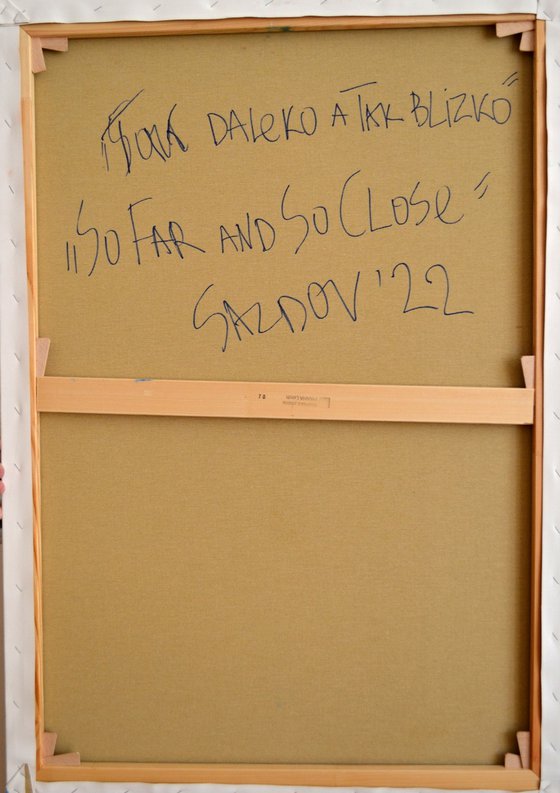 „Tak DALeKO A TAK BLIZKO"
„SO FAR AND SO CLOSe"
SAZDOV '22
70